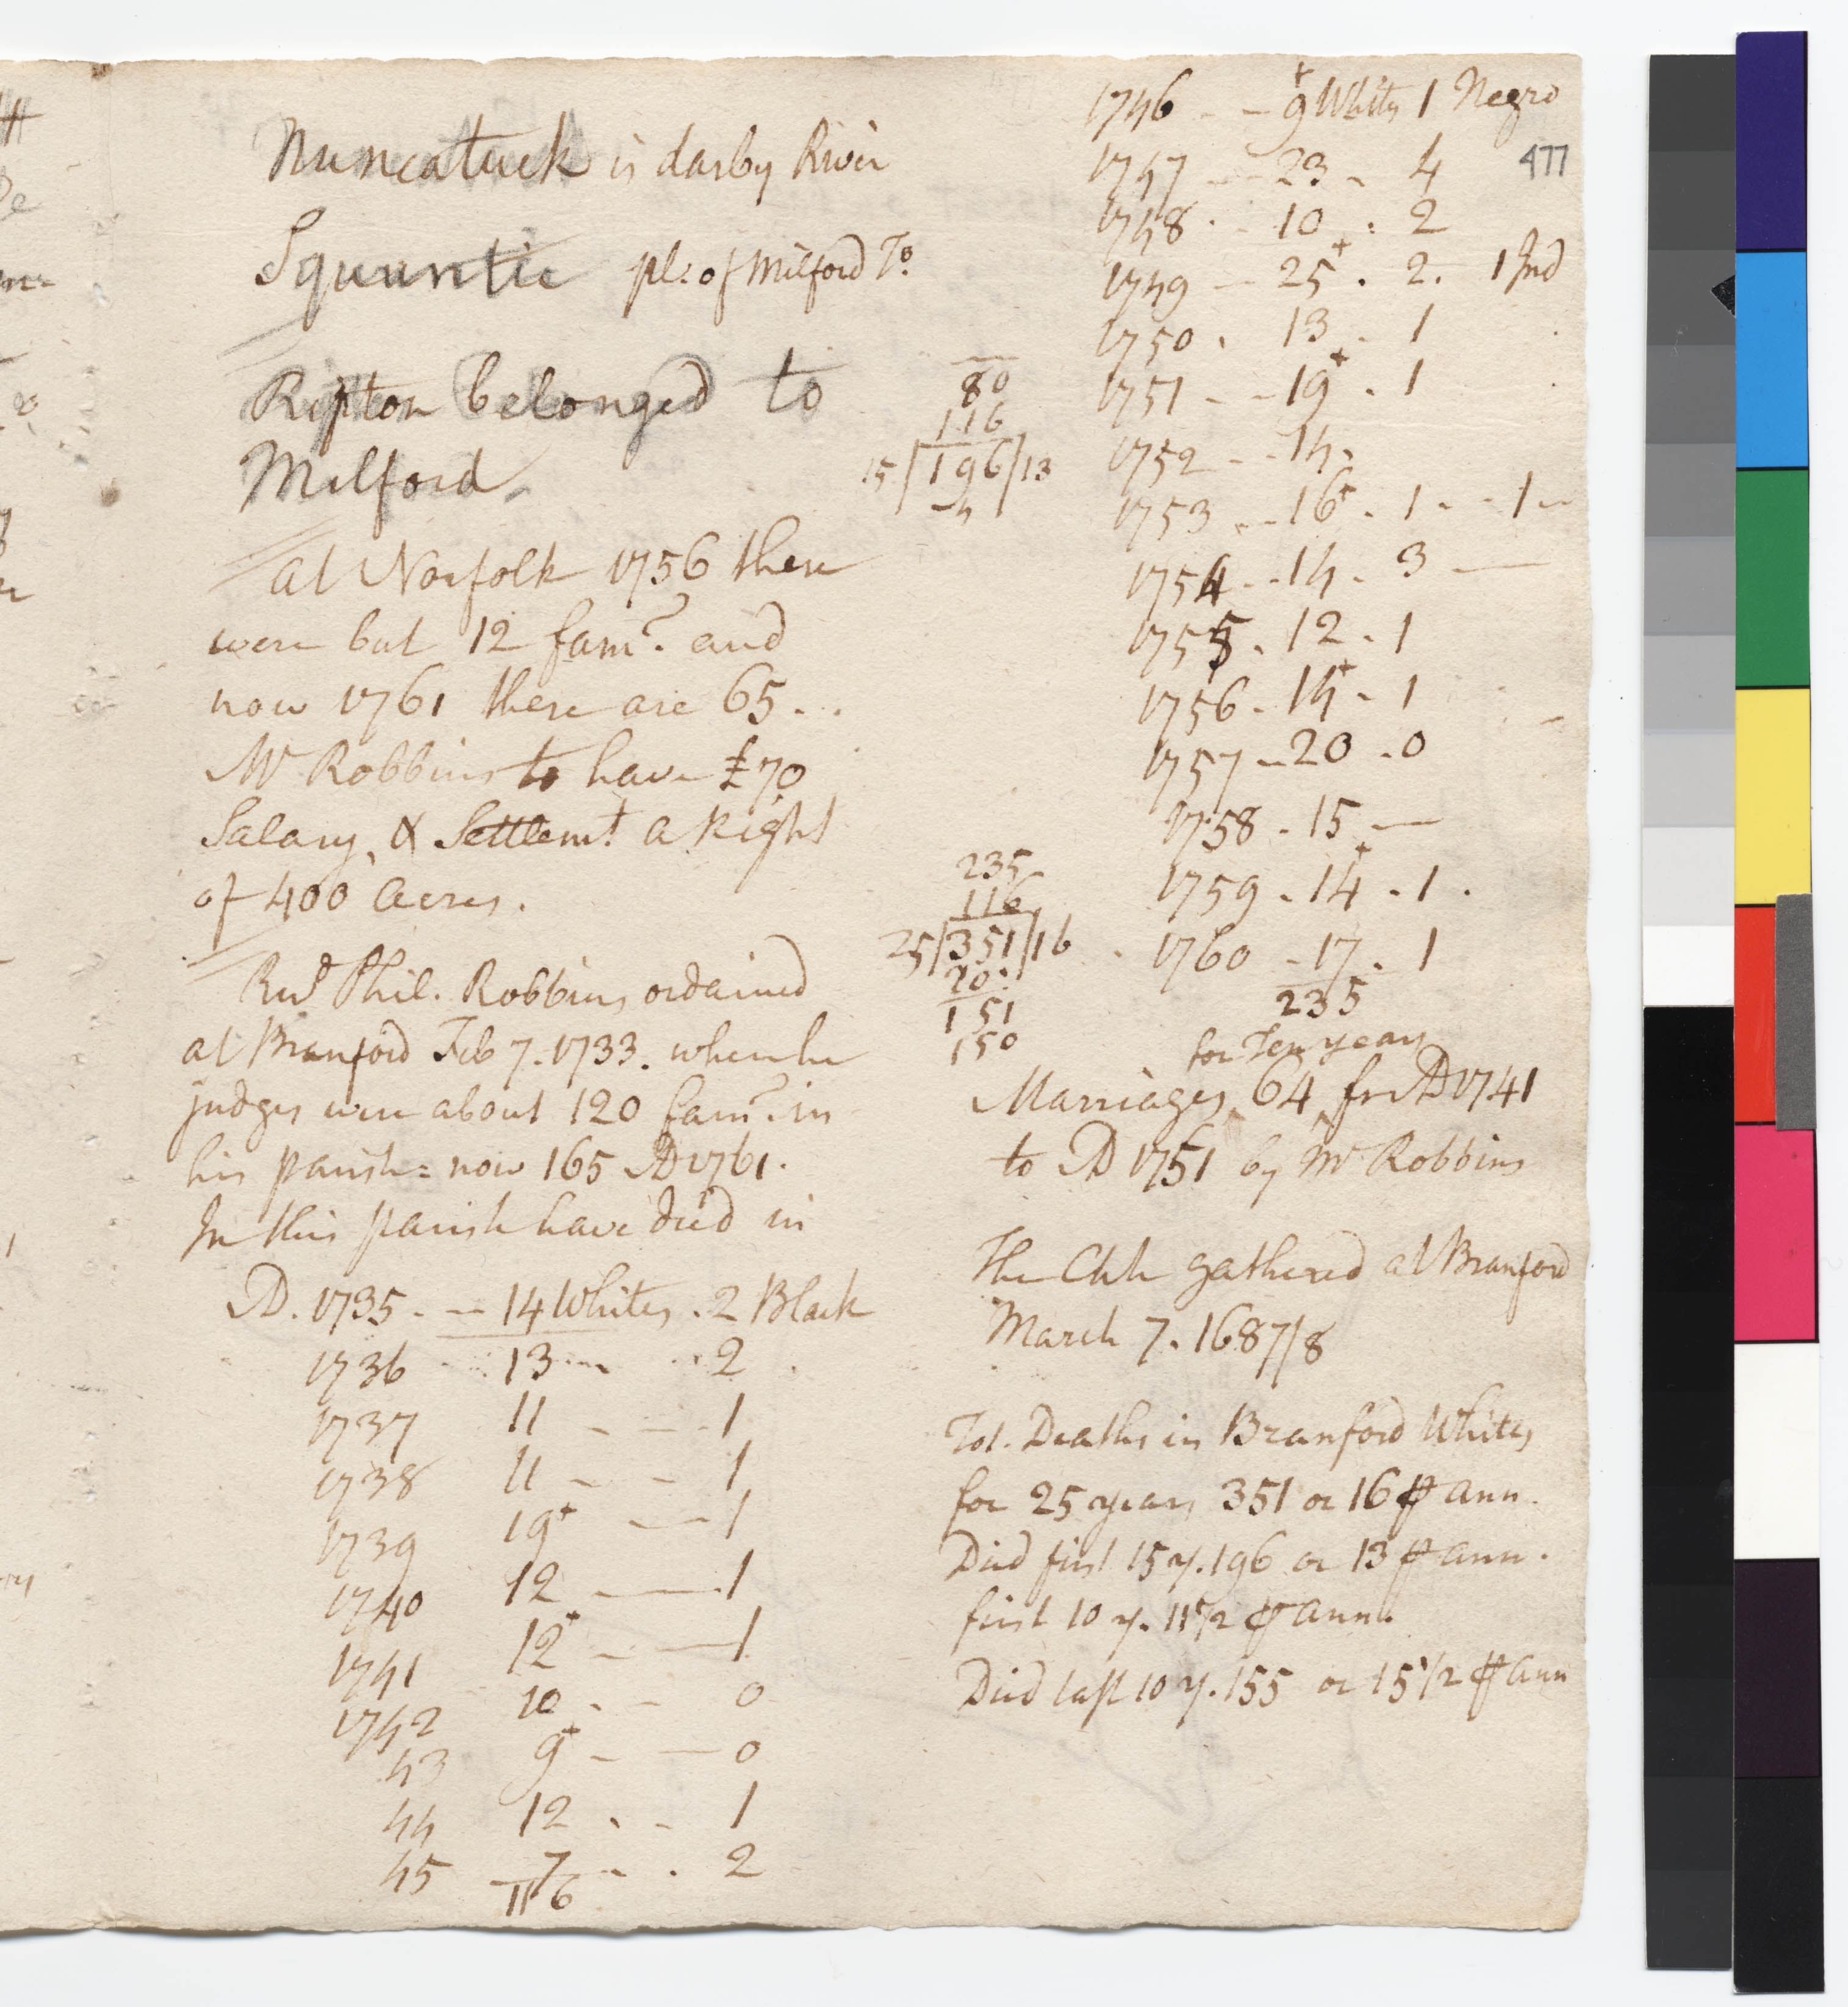 Nuncatuck is darby River
Squuntie pl: of Milford To.
Ripton belonged to
Milford.
at Norfolk 1756 there
were but 12 fams. and
now 1761 there are 65..
Mr Robbins to have £70
Salary, & Settlemt. a Right
of 400 acres.
Revd Phil. Robbins ordained
at Branford Feb 7. 1733. when he
judges were about 120 fams. in
his parish = now 165 AD 1761.
In this parish have died in
AD. 1735. -- 14 Whites. 2 Black
1736 13 -- 2
1737 11 - - - 1
1738 11 - - 1
1739 19+ - - 1
1740 12 - - 1
1741 12+ - - 1
1742 10 - - 0
43 9+ - - 0
44 12 - - 1
45 7 - - 2
116
80
116
15/196/13
-4
235
116
25/351/16
20:
151
150
1746 - - 9+ Whites 1 Negro
477
1747 - - 23 - 4
1748 - - 10 : 2
1749 - 25+ . 2. 1 Ind
1750 . 13 . 1
1751 - - 19+ . 1
1752 - - 14.
1753 - - 16+ . 1 - - 1 -
1754 - - 14 - 3 -
1755 . 12 . 1
1756 - 14+ - 1
1757 - 20 - 0
1758 - 15 -
1759 - 14+ - 1 .
1760 - 17 - 1
235
for Ten years
Marriages 64 fr AD 1741
to AD 1751 by Mr Robbins
The Chh gathered at Branford
March 7. 1687/8
Tot. Deaths in Branford Whites
for 25 years 351 or 16 ⅌ ann.
Died first 15 y. 196 or 13 ⅌ ann.
first 10 y. 11 1/2 ⅌ ann.
Died last 10 y. 155 or 15 1/2 ⅌ ann